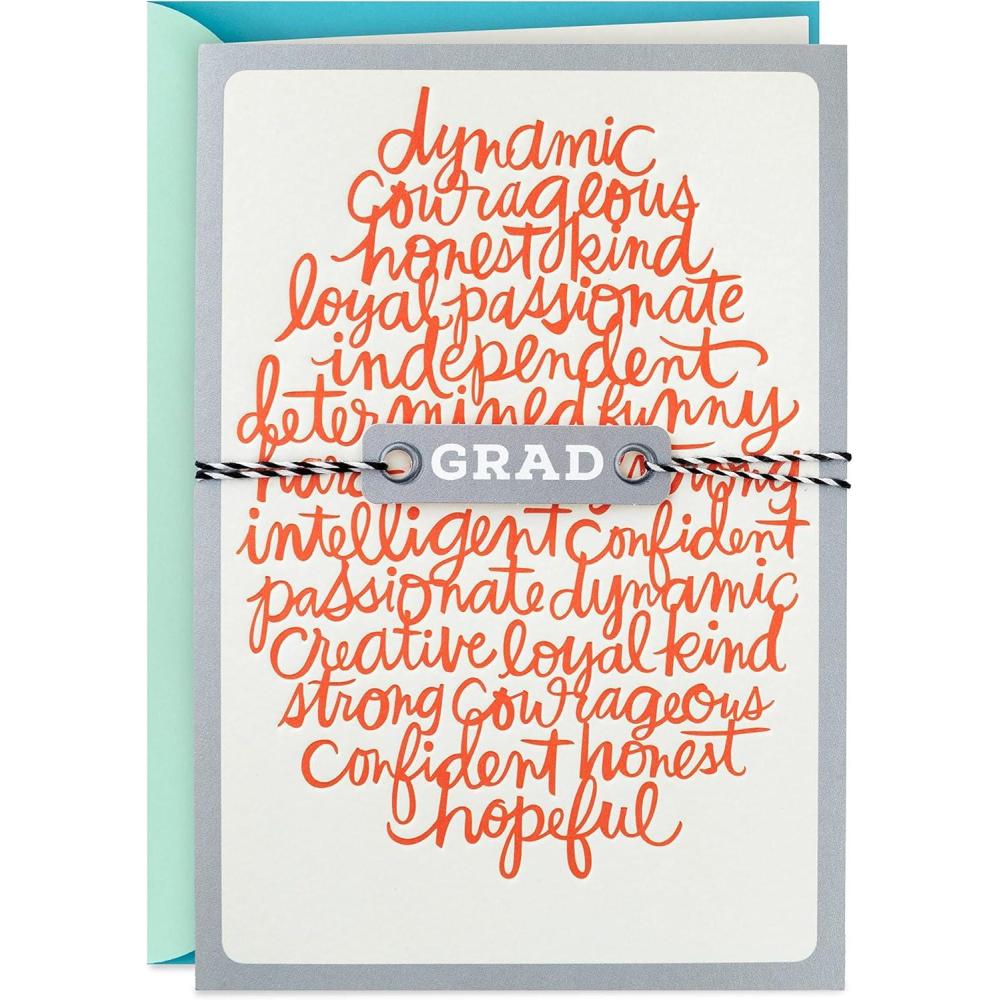 dynamic
courageous
honest kind
loyal passionate
independent
determined funny
GRAD
strong
intelligent confident
passionate dynamic
creative loyal kind
strong courageous
confident honest
hopeful